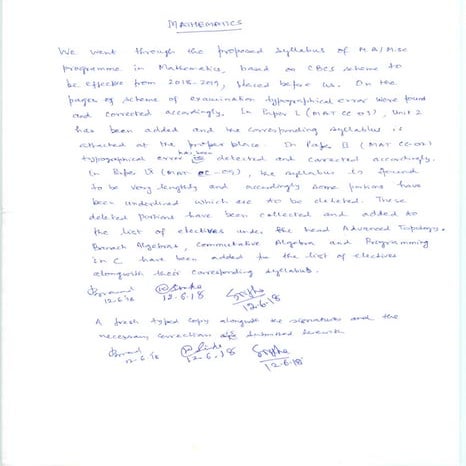 MATHEMATICS
We went through the proposed syllabus of M.A/M.Sc
programme in Mathematics, based on CBCS scheme to
be effective from 2018-2019, placed before us. On the
pages of scheme of examination typographical error were found
and corrected accordingly. In Paper I (MAT CC-03), Unit 2
has been added and the corresponding syllabus is
attached at the proper place. In Paper II (MAT CC-02)
typographical error has been detected and corrected accordingly.
In Paper IX (MAT CC-09), the syllabus is found
to be very lengthy and accordingly some portions have
been underlined which are to be deleted. These
deleted portions have been collected and added to
the list of electives under the head Advanced Topology.
Banach Algebras, Commutative Algebra and Programming
in C have been added to the list of electives
alongwith their corresponding syllabus.
12.6.18 12.6.18 12.6.18
A fresh typed copy alongwith the signatures and the
necessary correction is submitted herewith
12.6.18 12.6.18 12.6.18